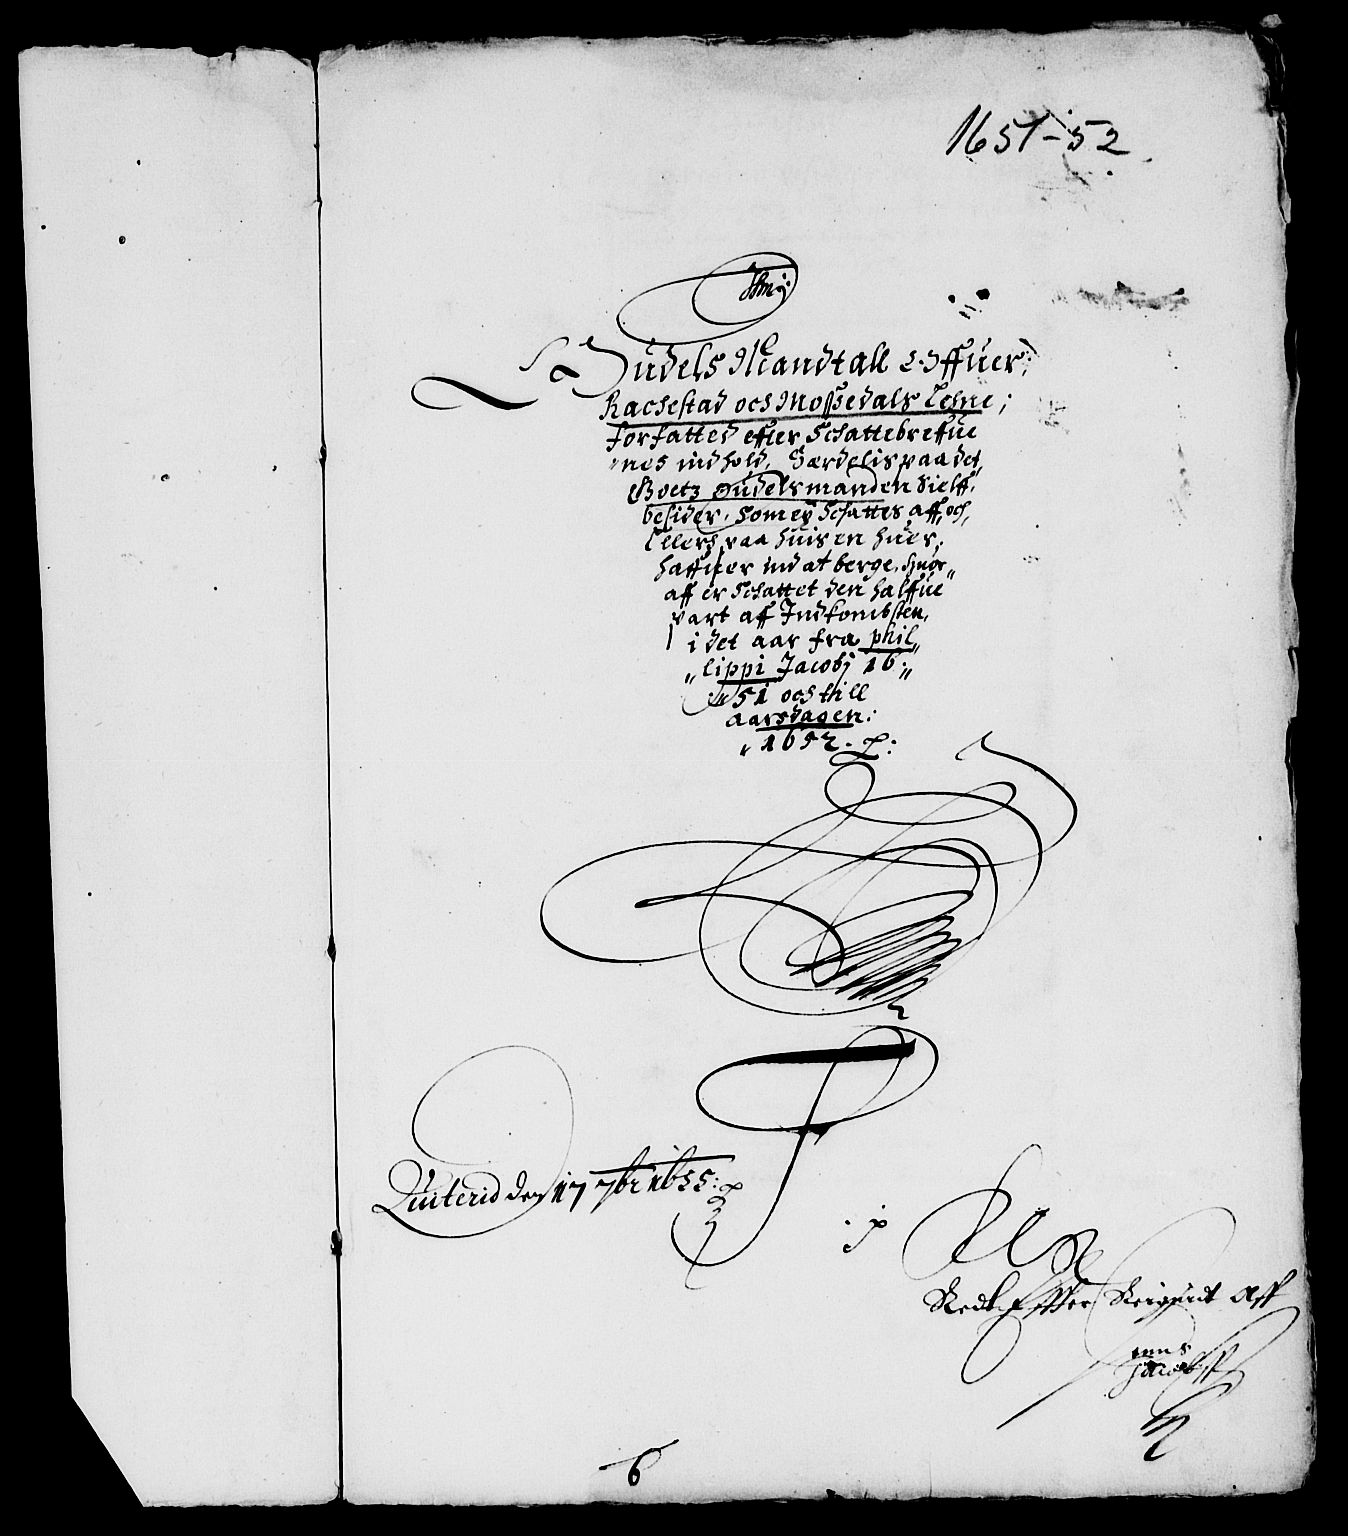 1651-52
Odels Mandtall Offuer
Rachestad och Mossedals Lehne;
forfatted effter Schattebreffue
nes indhold, Særdelis paa det,
Goetz Odelsmanden Sielff,
besider, som ey Schattes aff, och,
Ellers paa huis en huer,
haffuer ind at berge, huor„
aff er Schattet den halffue
part aff Indkombsten,
i det aar fra phil„
„lippi Jacobj 16„
51 och till
aarsdagen:
„1652. p:
Quiterid den 17 7br 1655:
Effter Aff
Jacobsf
6